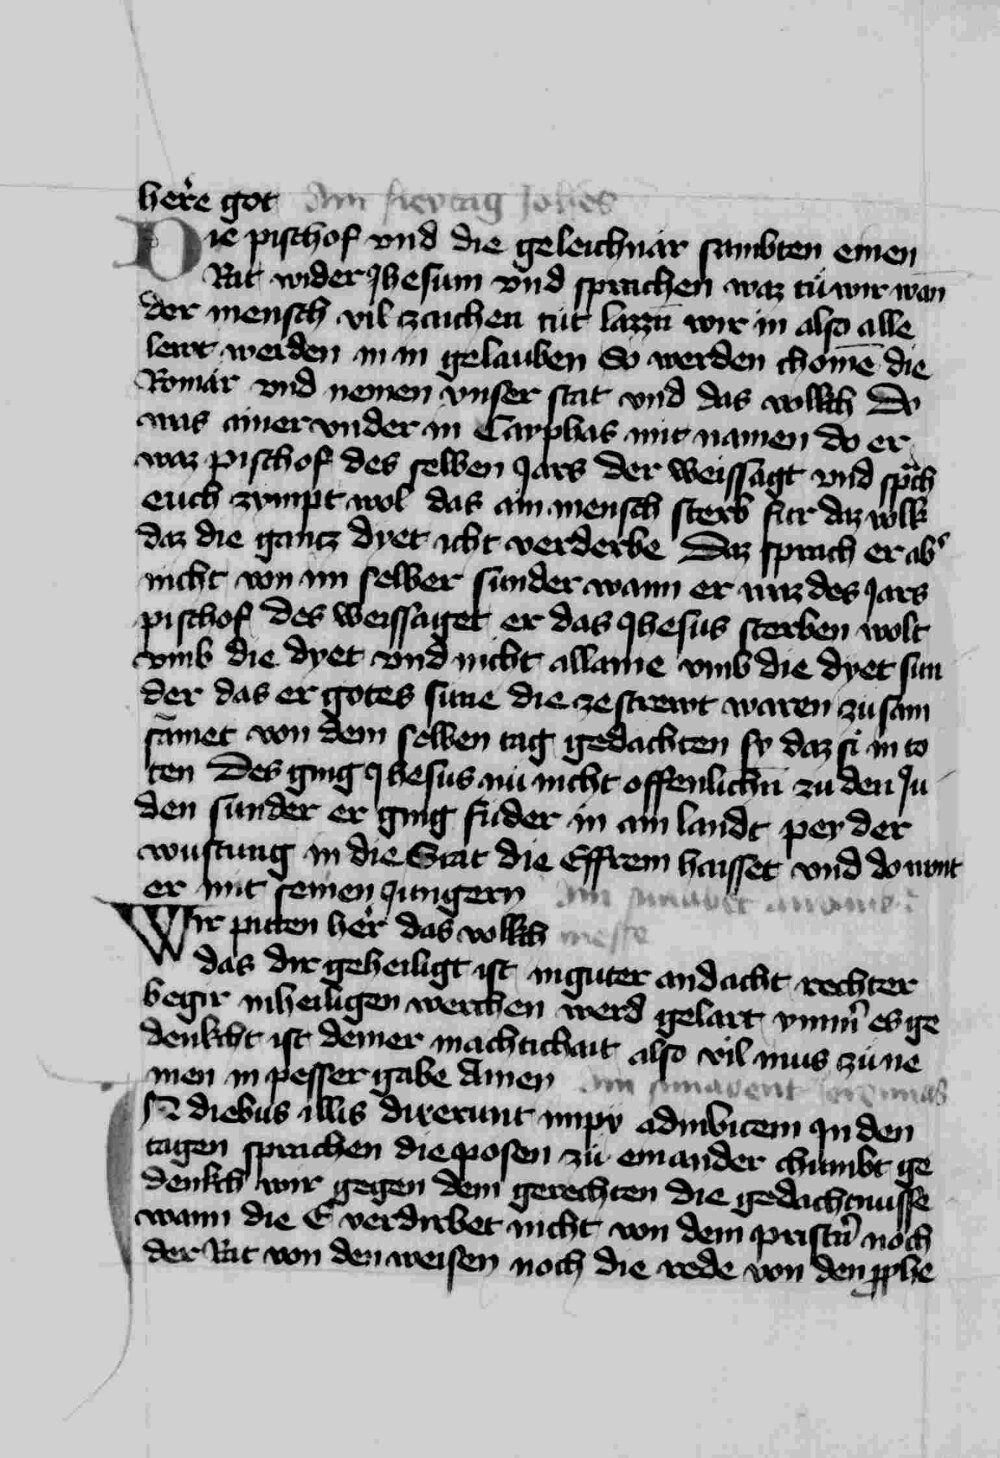 here got Am freytag Johes
Die pischof vnd die geleichnär sambten einen
Rat wider Jhesum vnd sprachen waz tü wir wan
der mensch vil zaichen tüt lazzn̄ wir in also alle
lewt werden in in gelauben So werden chomē die
Römär vnd nemen vnser stat vnd das volkch Do
was ainer vnder in Cayphas mit namen do er
waz pischof des selben Jars der weissagt vnd sprach
euch zympt wol das ain mensch sterb für daz volk
daz die gantz dyet icht verderbe Daz sprach er ab
nicht von im selber sunder wann er waz des Jars
pischof des weissaget er das Jhesus sterben wolt
vmb die dyet vnd nicht allaine vmb die dyet sun
der das er gotes süne die zestrewt waren zusam
sāmet von dem selben tag gedachten sy daz si in to
ten Des ging Jhesus nü nicht offenlichn̄ zu den Ju
den sunder er ging fuder in ain landt pey der
wustung in die Stat die Effrem haisset vnd do wont
er mit seinen Jungern Am sunabent
Wir pitten her das volkch messe
das dir geheiligt ist in guter andacht rechter
begir in heiligen werchen werd gelart vnnn̄ es ge
denkcht ist deiner machtichait also vil mus zü ne
men in pesser gabe Amen Am sunabent Jeremias
IN diebus illis dixerunt impy adinbicem In den
tagen sprachen die posen zü einander chümbt ge
denkch wir gegen dem gerechten die gedachtnusse
wann die E verdirbet nicht von dem pristn̄ noch
der Rat von den weisen noch die rede von den pphe